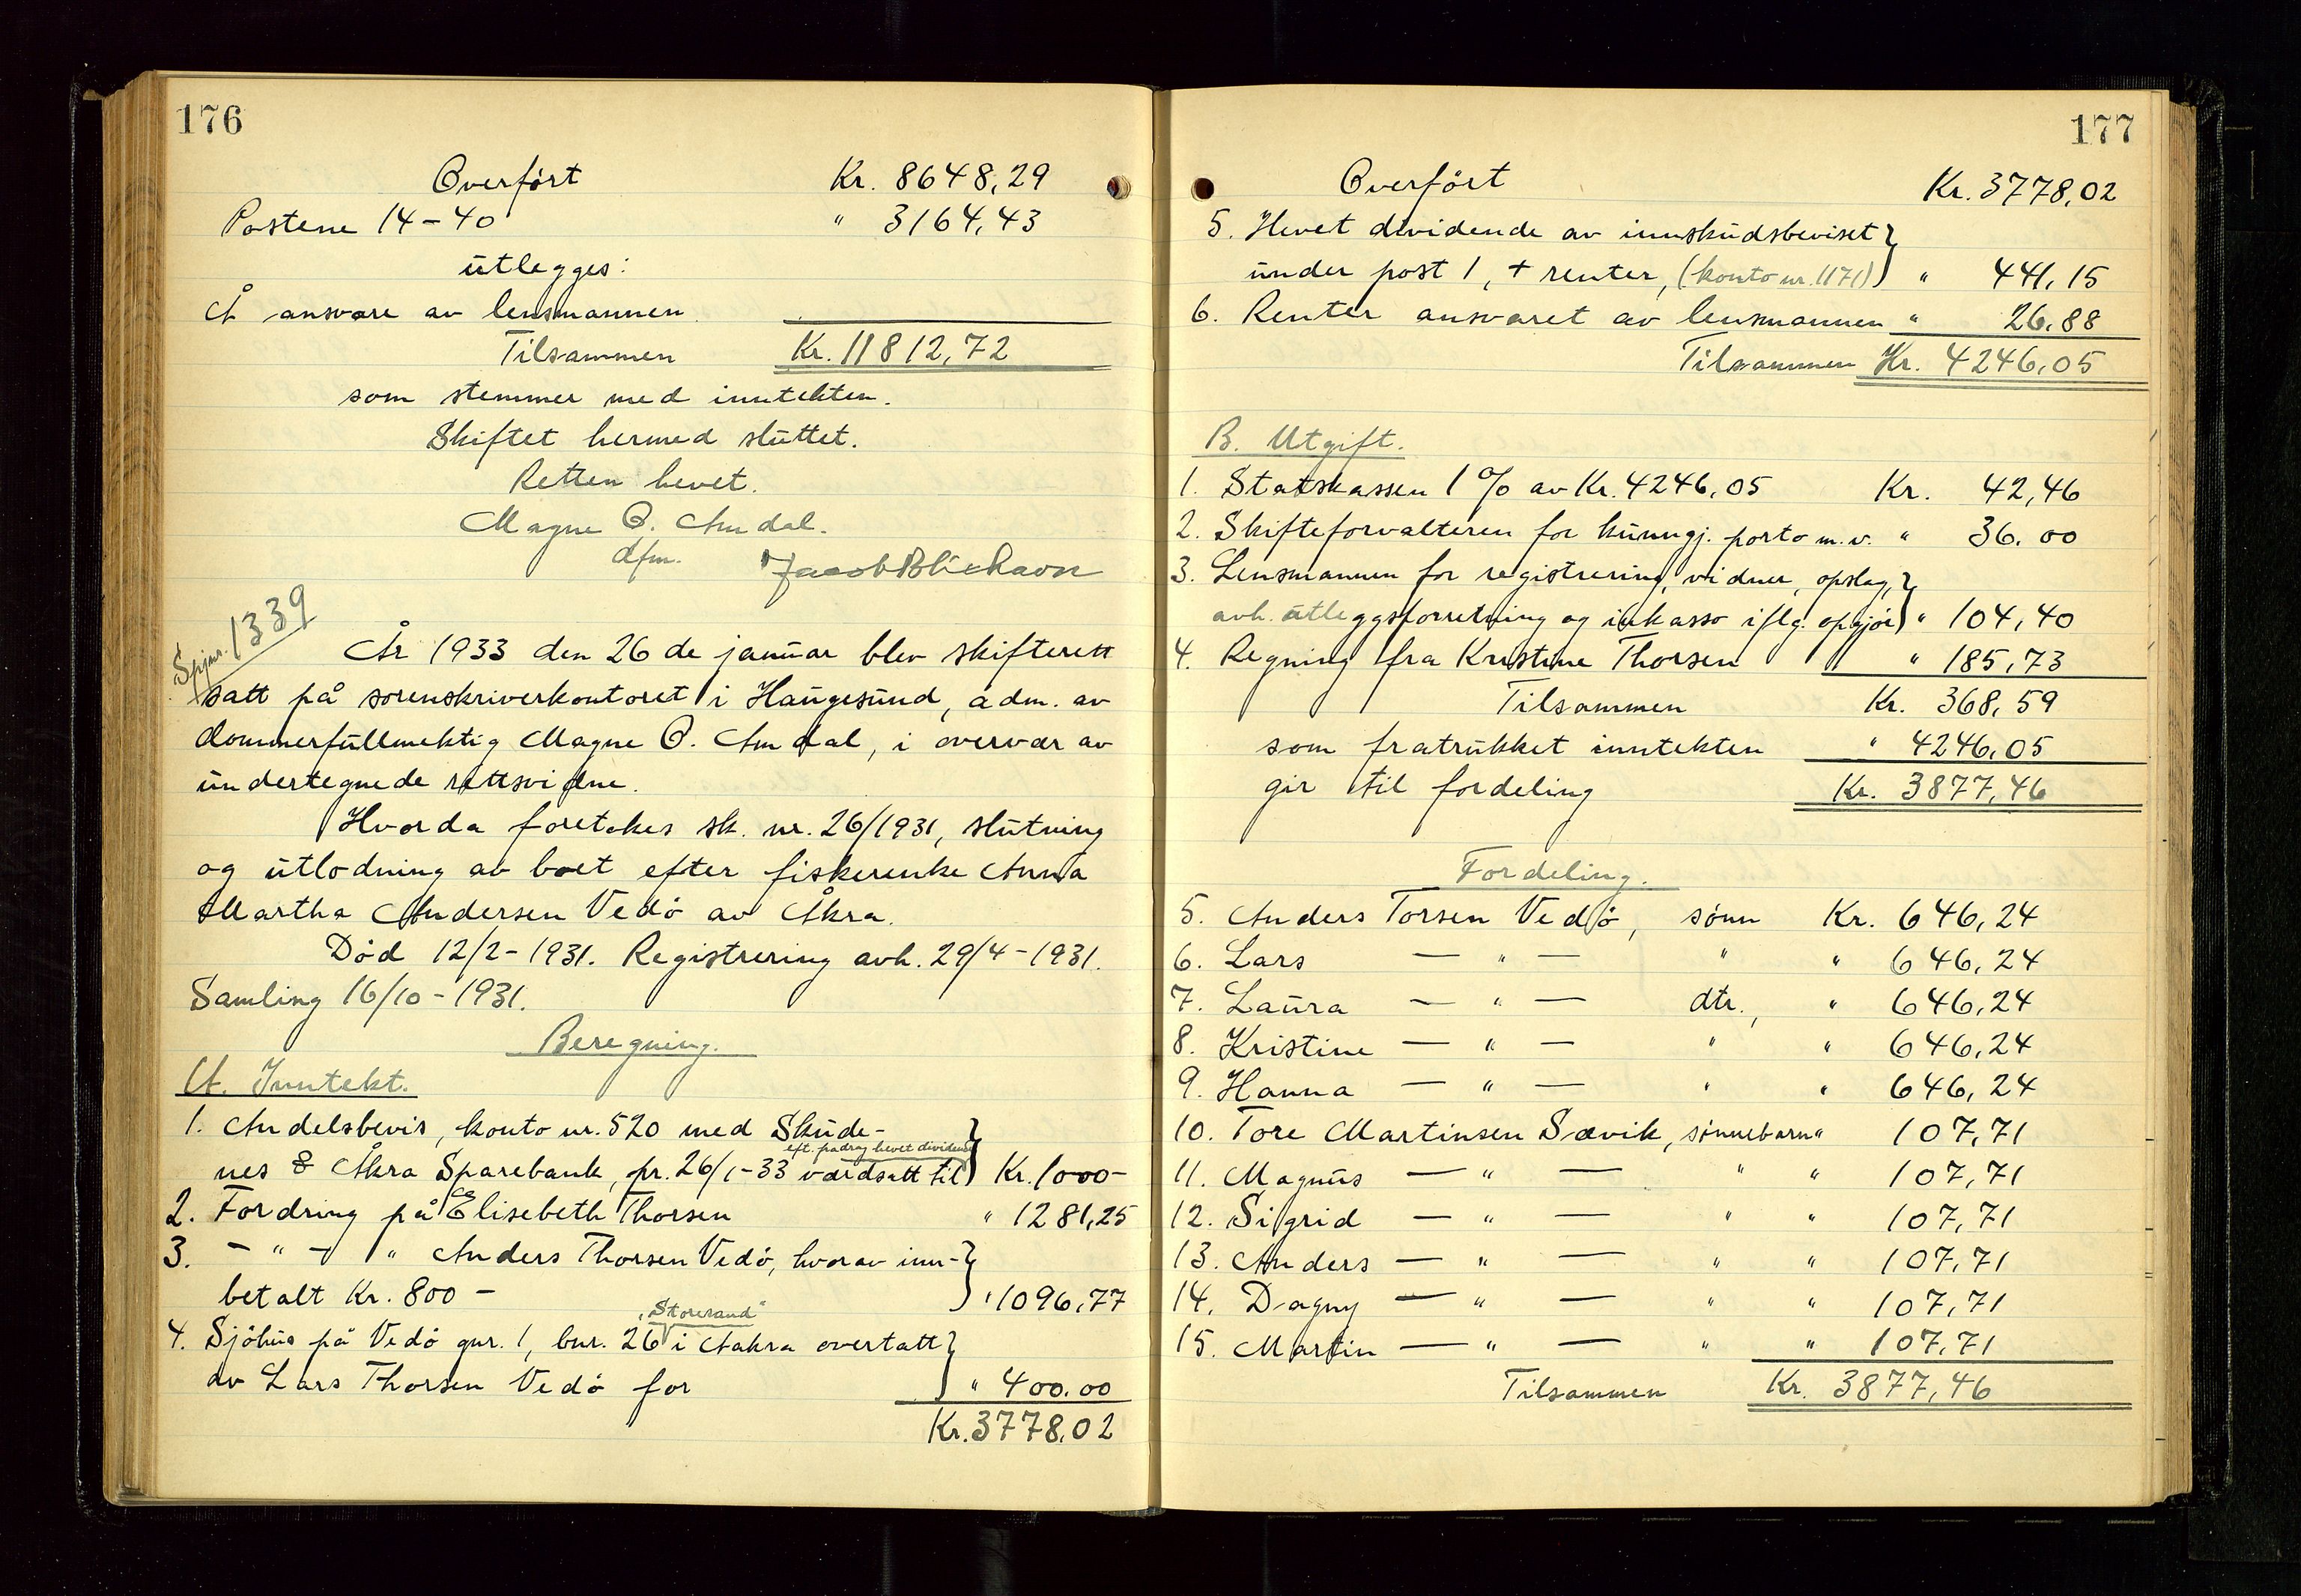 176
Overført Kr. 8648,29
Postene 14-40 " 3164,43
utlegges:
Å ansvare av lensmannen
Tilsammen Kr. 11812,72
som stemmer med inntekten.
Skiftet hermed sluttet.
Retten hevet.
Magne O. Amdal.
dfm. Jacob Blikhavn
Spjnr. 1339
År 1933 den 26 de januar blev skifterett
satt på sorenskriverkontoret i Haugesund, adm. av
dommerfullmektig Magne O. Amdal, i overvær av
undertegnede rettsvidne.
Hvorda foretokes sk. nr. 26/1931, slutning
og utlodning av boet efter fiskerenke Anna
Martha Andersen Vedø av Åkra.
Død 12/2-1931. Registrering avh. 29/4-1931.
Samling 16/10-1931.
Beregning.
A. Inntekt.
1. Andelsbevis, konto nr. 520 med Skude-
eft. fradrag hevet dividende
nes & Åkra Sparebank, pr. 26/1-33 værdsatt til Kr. 1000-
2. Fordring på Elisebeth Thorsen " 1281,25
3. - " - " Anders Thorsen Vedø, hvorav inn-
betalt Kr. 800 - " 1096,77
"Storesand"
4. Sjøhus på Vedø gnr. 1, bnr. 26 i Aakra overtatt
av Lars Thorsen Vedø for " 400.00
Kr. 3778.02
177
Overført Kr. 3778,02
5. Hevet dividende av innskudsbeviset
under post 1, + renter, (konto nr. 1171) " 441,15
6. Renter ansvaret av lensmannen " 26,88
Tilsammen Kr. 4246,05
B. Utgift.
1. Statskassen 1 % av Kr. 4246,05 Kr. 42,46
2. Skifteforvalteren for kunngj. porto m.v. " 36.00
3. Lensmannen for registrering, vidner, opslag,
avh. utleggsforretning og inkasso iflg. opgjør " 104,40
4. Regning fra Kristine Thorsen " 185,73
Tilsammen Kr. 368,59
som fratrukket inntekten " 4246,05
gir til fordeling Kr. 3877,46
Fordeling.
5. Anders Torsen Vedø, sønn Kr. 646,24
6. Lars — " — " " 646,24
7. Laura — " — dtr., " 646,24
8. Kristine — " — " " 646,24
9. Hanna — " — " " 646,24
10. Tore Martinsen Sævik, sønnebarn " 107,71
11. Magnus — " — " " 107,71
12. Sigrid — " — " " 107,71
13. Anders — " — " " 107,71
14. Dagny — " — " " 107,71
15. Martin — " — " " 107,71
Tilsammen Kr. 3877,46